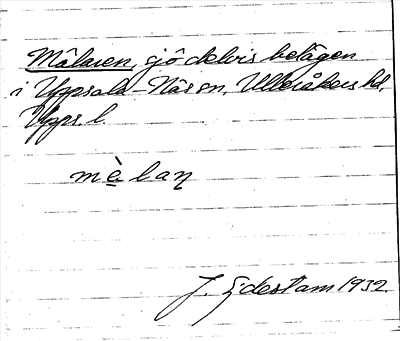 Mälaren, sjö delvis belägen
i Uppsala-Näs sn, Ulleråkers hd,
Upps. l.
mè̱laṇ
J. Eidestam 1932.